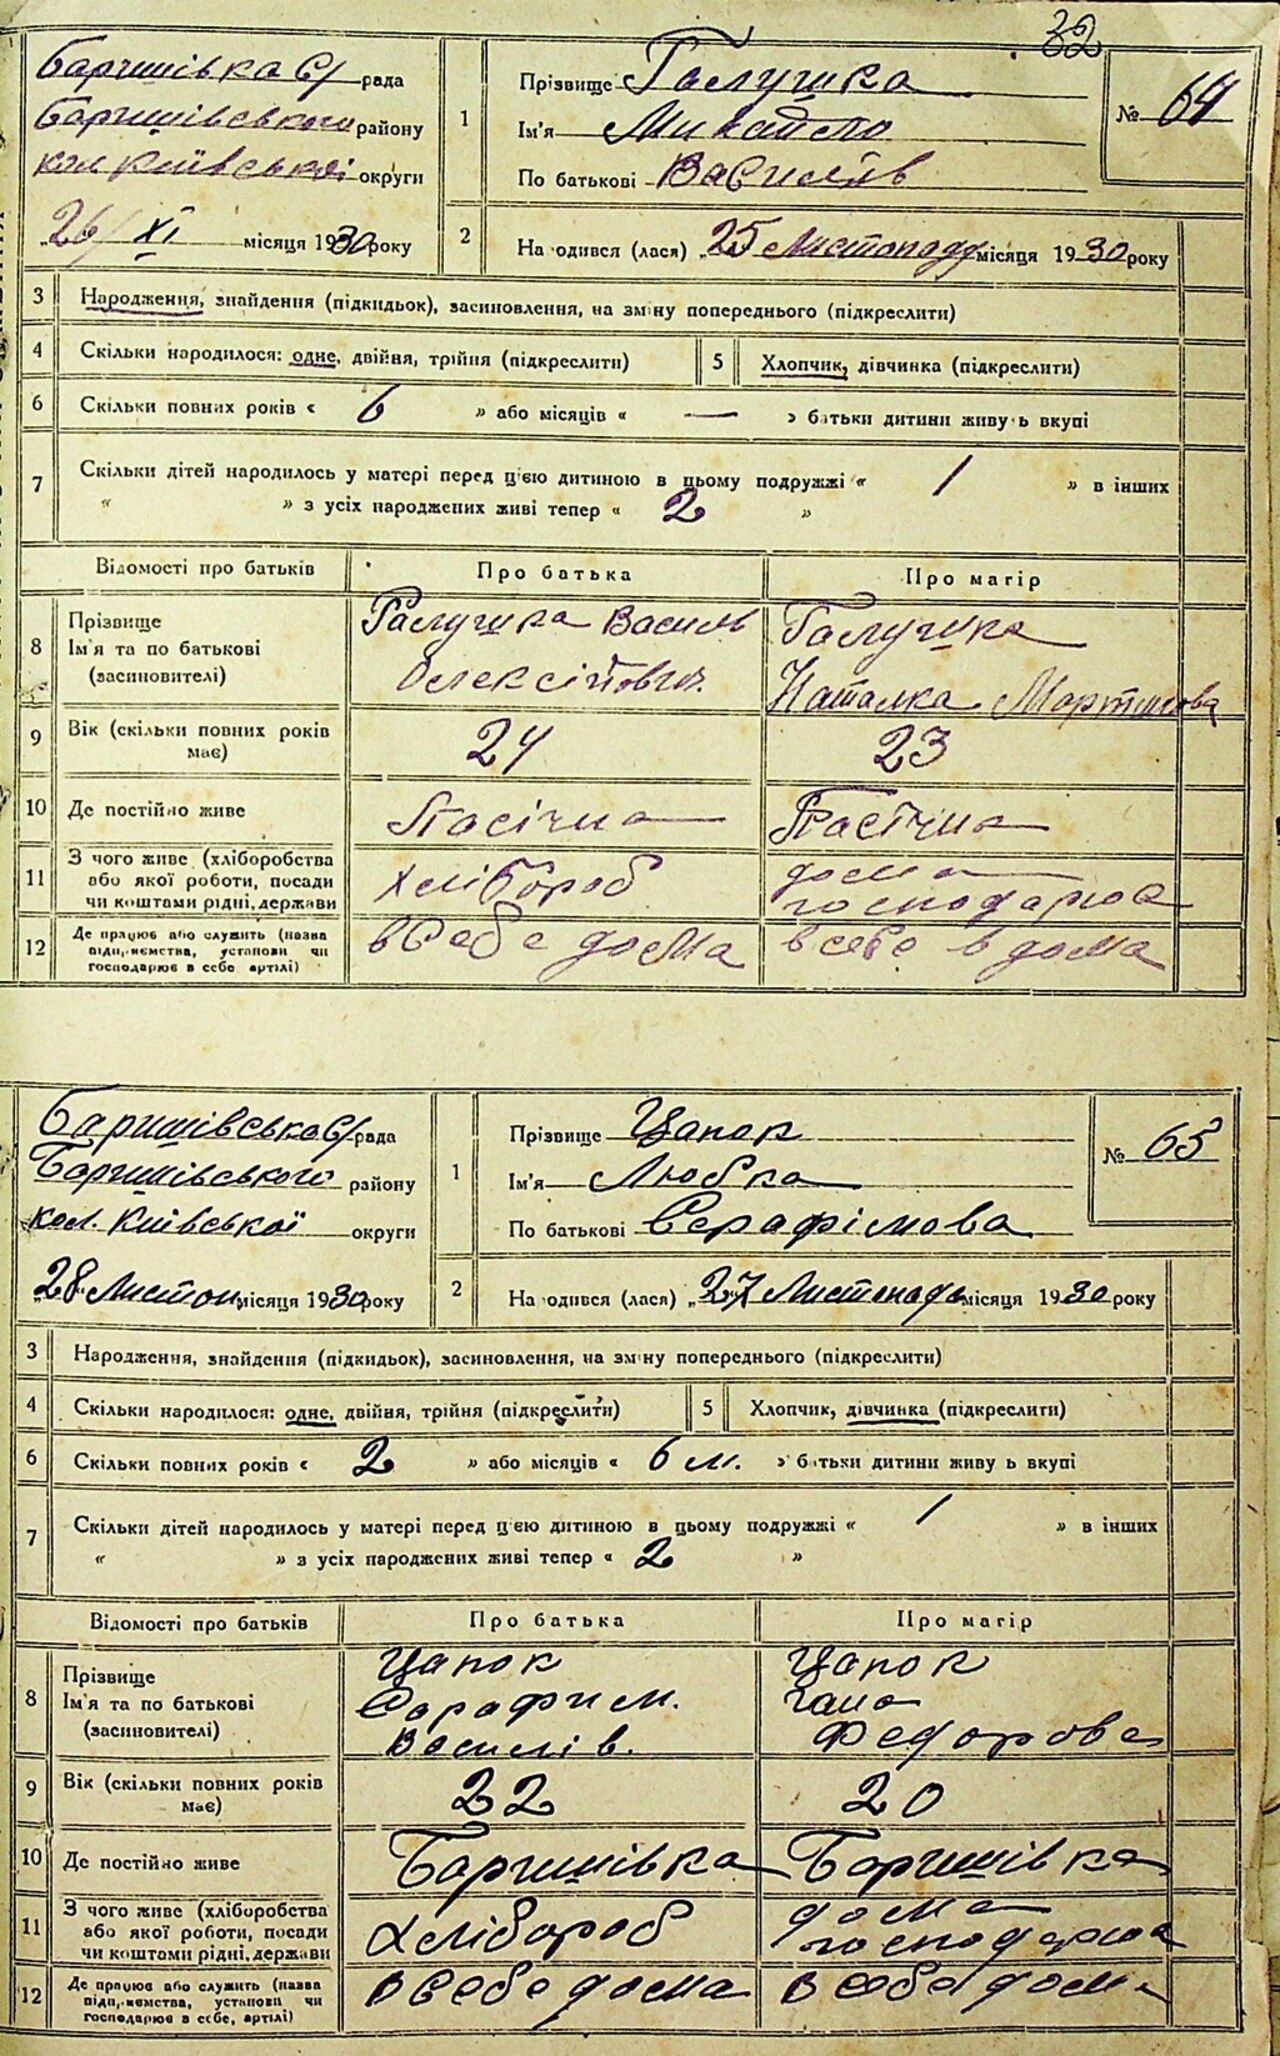 32
Баришівка С/рада
Баришівського району
кол Київської округи
„26/XI місяця 1930 року
1 Прізвище Галушка
Ім'я Михайло
По батькові Василів
№ 64
2 На одився (лася) „25 Листопаду місяця 1930 року
3 Народження, знайдення (підкидьок), засиновлення, на зміну попереднього (підкреслити)
4 Скільки народилося: одне, двійня, трійня (підкреслити) 5 Хлопчик, дівчинка (підкреслити)
6 Скільки повних років « 6 » або місяців « — » батьки дитини живу ь вкупі
7 Скільки дітей народилось у матері перед цією дитиною в цьому подружжі « 1 » в інших
« » з усіх народжених живі тепер « 2 »
Відомості про батьків Про батька Про матір
8 Прізвище
Ім'я та по батькові
(засиновителі)
Галушка Василь
Олексійович
Галушка
Наталка Мартинова
9 Вік (скільки повних років
має)
24 23
10 Де постійно живе Пасічна Пасічна
11 З чого живе (хліборобства
або якої роботи, посади
чи коштами рідні, держави
хлібороб
дома
господарює
12 Де працює або служить (назва
підприємства, установи чи
господарює в себе артілі)
в себе дома в себе в дома
Баришівська С/рада
Баришівського району
кол. Київської округи
„28 Листоп місяця 1930 року
1 Прізвище Цапок
Ім'я Любка
По батькові Серафімова
№ 65
2 На одився (лася) „27 Листопада місяця 1930 року
3 Народження, знайдення (підкидьок), засиновлення, на зміну попереднього (підкреслити)
4 Скільки народилося: одне, двійня, трійня (підкреслити) 5 Хлопчик, дівчинка (підкреслити)
6 Скільки повних років « 2 » або місяців « 6 м. » батьки дитини живу ь вкупі
7 Скільки дітей народилось у матері перед цією дитиною в цьому подружжі « 1 » в інших
« » з усіх народжених живі тепер « 2 »
Відомості про батьків Про батька Про матір
8 Прізвище
Ім'я та по батькові
(засиновителі)
Цапок
Сарафим.
Василів.
Цапок
Гана
Федорова
9 Вік (скільки повних років
має)
22 20
10 Де постійно живе Баришівка Баришівка
11 З чого живе (хліборобства
або якої роботи, посади
чи коштами рідні, держави
Хлібороб
дома
господарює
12 Де працює або служить (назва
підприємства, установи чи
господарює в себе, артілі)
в себе дома в себе дома